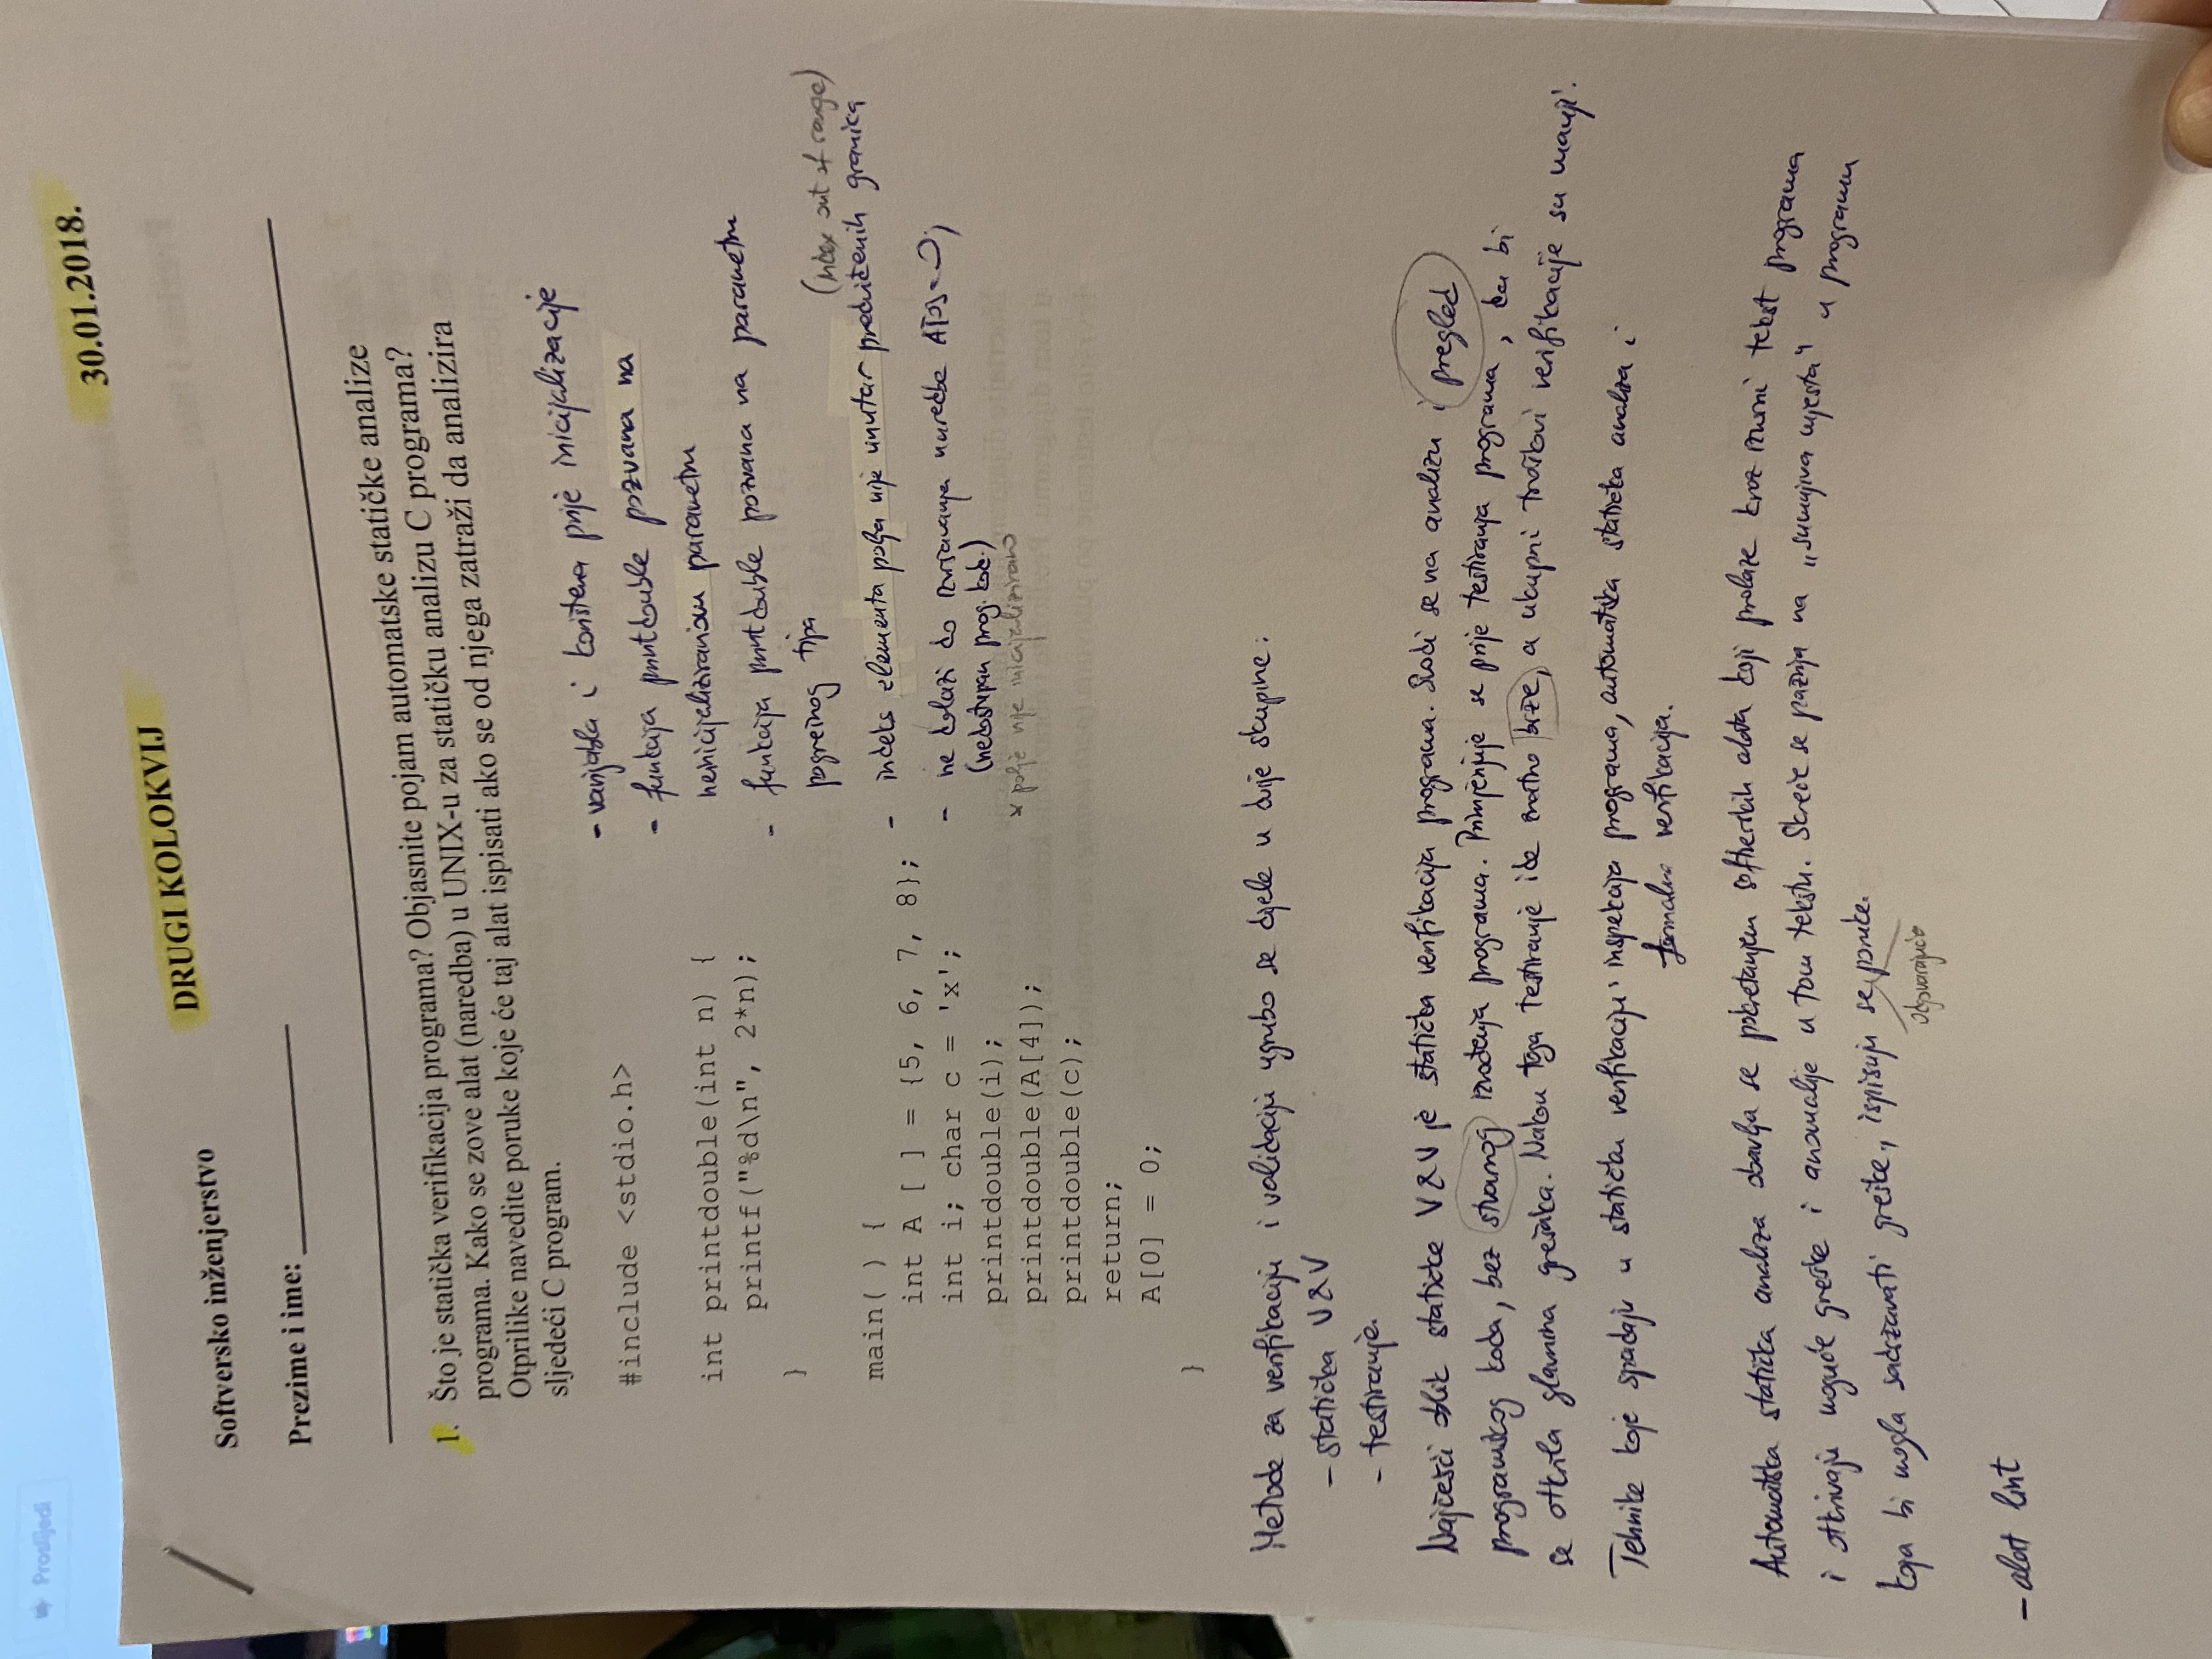 Proslijedi
30.01.2018.
DRUGI KOLOKVIJ
Softversko inženjerstvo
Prezime i ime:
1. Što je statička verifikacija programa? Objasnite pojam automatske statičke analize
programa. Kako se zove alat (naredba) u UNIX-u za statičku analizu C programa?
Otprilike navedite poruke koje će taj alat ispisati ako se od njega zatraži da analizira
sljedeći C program.
#include <stdio.h>
int printdouble(int n) {
printf("%d\n", 2*n);
}
main( ) {
int A [ ] = {5, 6, 7, 8};
int i; char c = 'x';
printdouble(i);
printdouble(A[4]);
printdouble(c);
return;
A[0] = 0;
}
- varijabla i korištena prije inicijalizacije
- funkcija printdouble pozvana na
neinicijaliziranom parametru
- funkcija printdouble pozvana na parametru
pogrešnog tipa
(index out of range)
- indeks elementa polja nije unutar predviđenih granica
- ne dolazi do izvršavanja naredbe A[0]=0;
(nedostupan prog. kod.)
* polje nije inicijalizirano
Metode za verifikaciju i validaciju ugrubo se dijele u dvije skupine:
- statička V&V
- testiranje.
Najčešći oblik statičke V&V je statička verifikacija programa. Svodi se na analizu i pregled
programskog koda, bez stvarnog izvođenja programa. Primjenjuje se prije testiranja programa, da bi
se otkrila glavnina grešaka. Nakon toga testiranje ide znatno brže, a ukupni troškovi verifikacije su manji.
Tehnike koje spadaju u statičku verifikaciju: inspekcija programa, automatska statička analiza i
formalna verifikacija.
Automatska statička analiza obavlja se pokretanjem softverskih alata koji prolaze kroz izvorni tekst programa
i otkrivaju moguće greške i anomalije u tom tekstu. Skreće se pažnja na „sumnjiva mjesta“ u programu
koja bi mogla sadržavati greške., ispisuju se poruke.
odgovarajuće
- alat lint